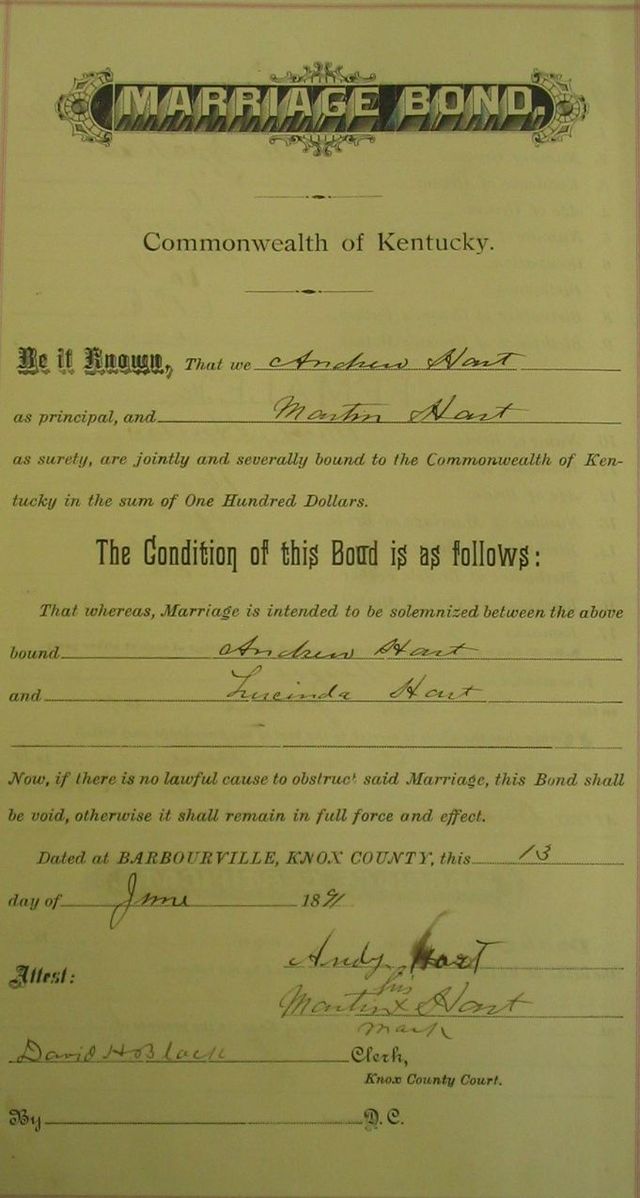 MARRIAGE BOND.
Commonwealth of Kentucky.
Be it Known, That we Andrew Hart
as principal, and Martin Hart
as surety, are jointly and severally bound to the Commonwealth of Ken-
tucky in the sum of One Hundred Dollars.
The Condition of this Bond is as follows:
That whereas, Marriage is intended to be solemnized between the above
bound Andrew Hart
and Lucinda Hart
Now, if there is no lawful cause to obstruct said Marriage, this Bond shall
be void, otherwise it shall remain in full force and effect.
Dated at BARBOURVILLE, KNOX COUNTY, this 13
day of June 1891
Andy Hart
Attest:
his
Martin x Hart
mark
David H Black Clerk,
Knox County Court.
By D. C.